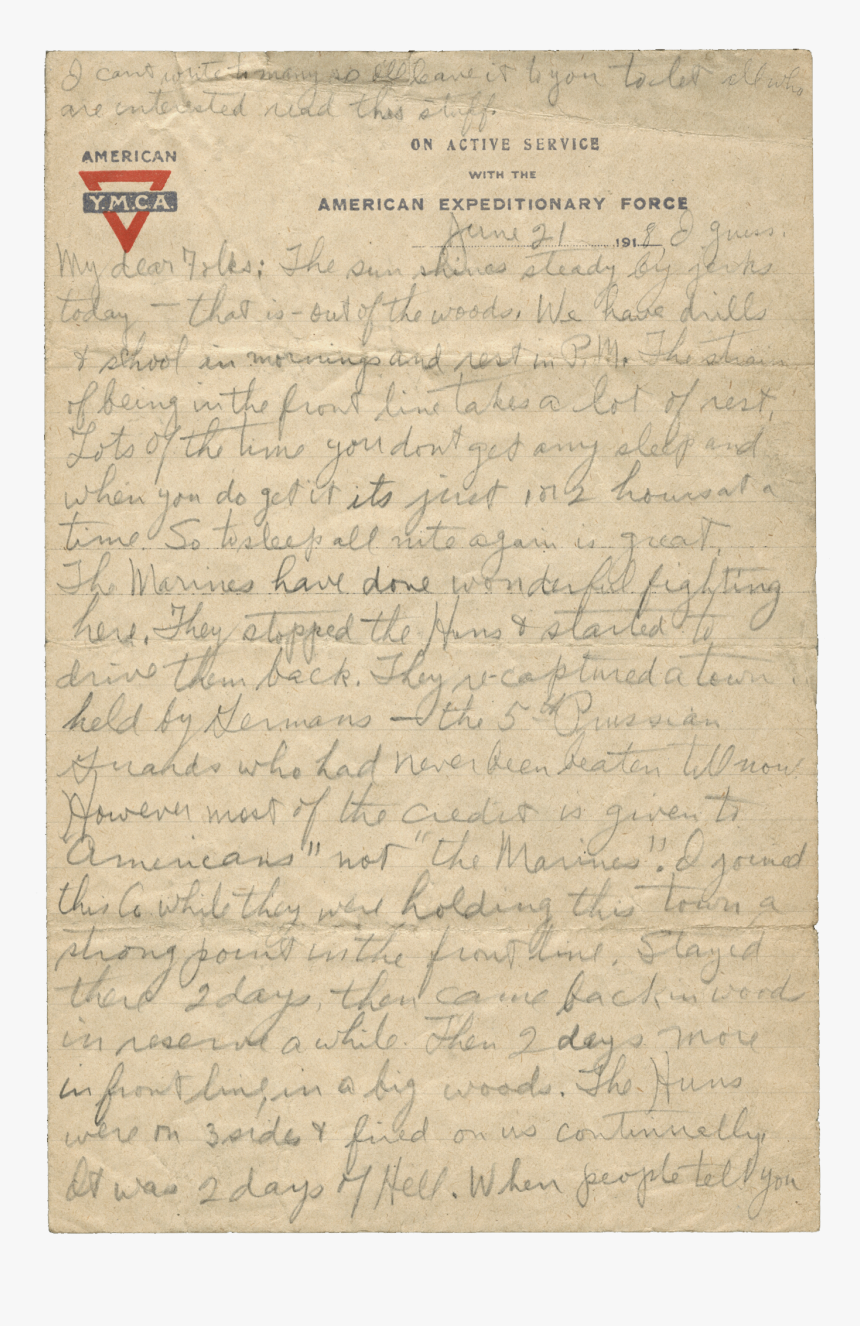 I cant write to many so Ill leave it to you to let all who
are interested read this stuff.
AMERICAN
Y.M.C.A.
ON ACTIVE SERVICE
WITH THE
AMERICAN EXPEDITIONARY FORCE
June 21 1918 I guess.
My dear Folks: The sun shines steady by jerks
today — that is - out of the woods. We have drills
& school in mornings and rest in P.M. The strain
of being in the front line takes a lot of rest.
Lots of the time you dont get any sleep and
when you do get it its just 1 or 2 hours at a
time. So to sleep all nite again is great.
The Marines have done wonderful fighting
here. They stopped the Huns & started to
drive them back. They re-captured a town
held by Germans — the 5th Prussian
Guards who had never been beaten till now
However most of the credit is given to
"Americans" not "the Marines". I joined
this Co while they were holding this town a
strong point in the front line. Stayed
there 2 days, then came back in wood
in reserve a while. Then 2 days more
in front line, in a big woods. The Huns
were on 3 sides & fired on us continually.
It was 2 days of Hell. When people tell you